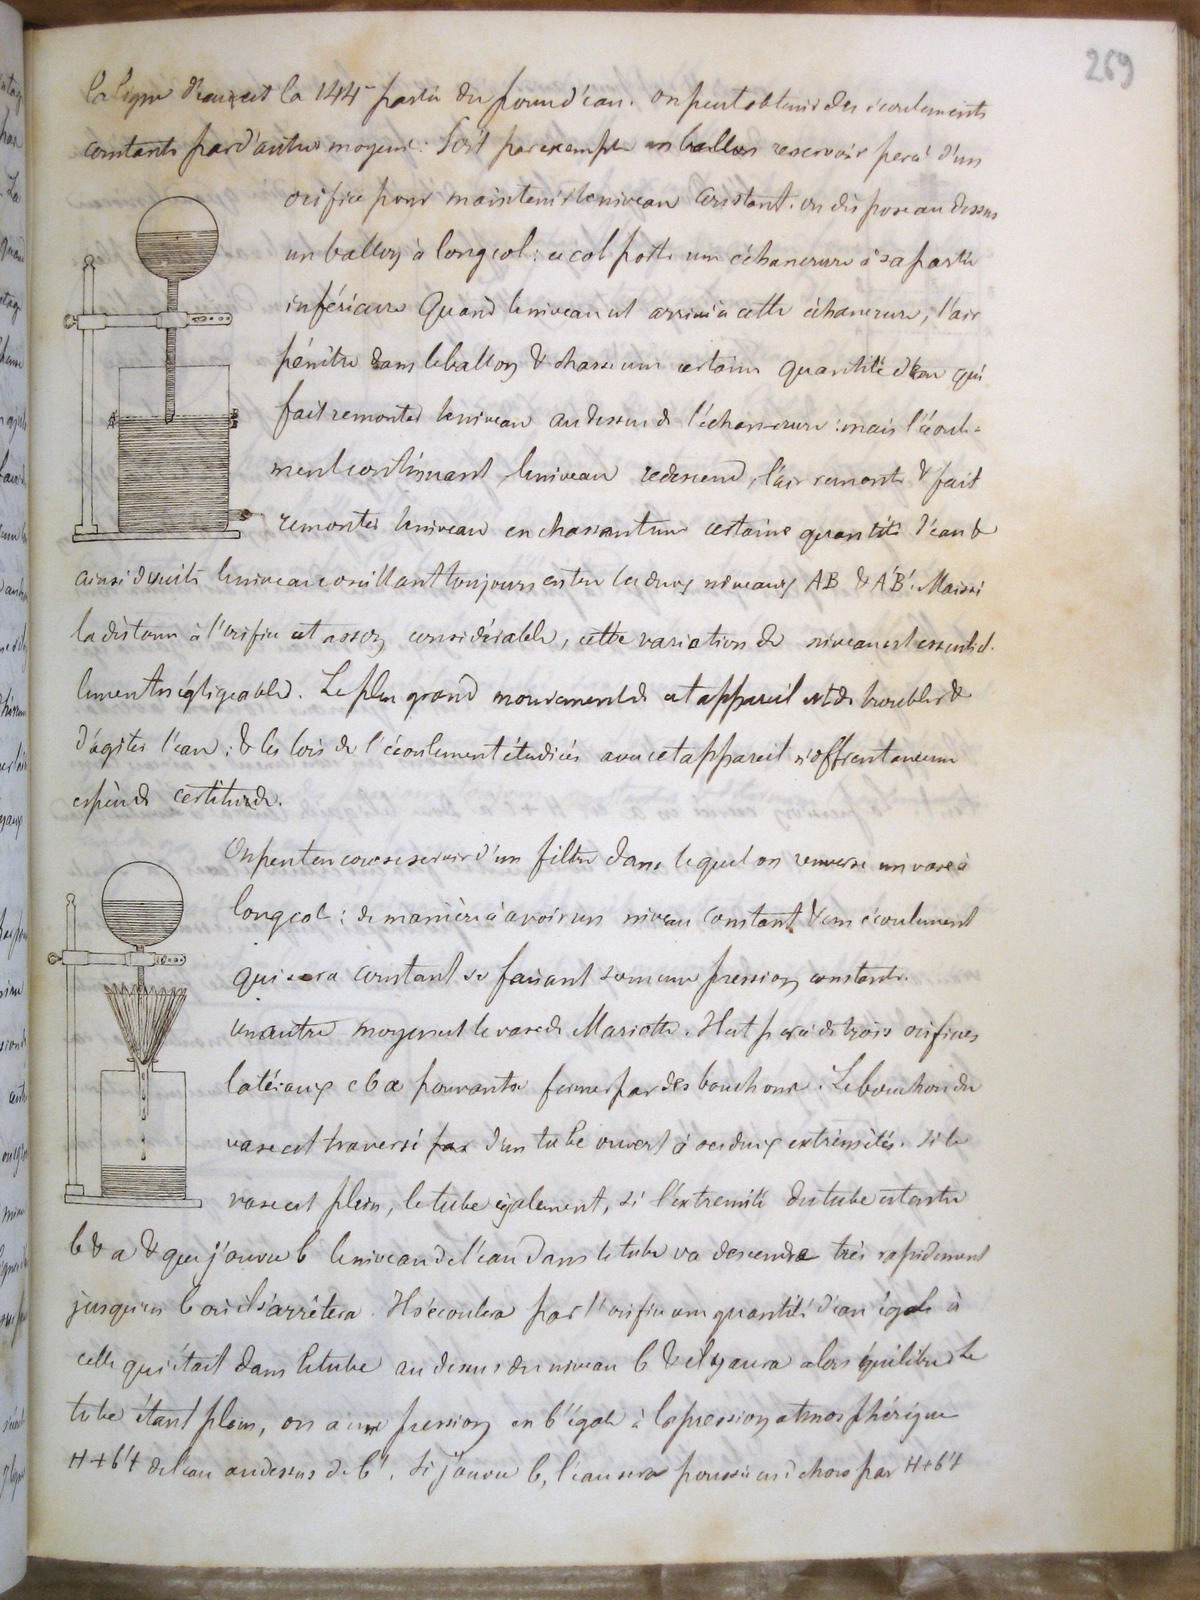 269
la ligne d'eau est la 144e partie du pouce d'eau. On peut obtenir des écoulements
constants par d'autres moyens: Soit par exemple un ballon reservoir percé d'un
orifice pour maintenir le niveau constant. on dispose au dessus
un ballon à long col: ce col porte une échancrure à sa partie
inférieure Quand le niveau est arrivé à cette échancrure, l'air
pénètre dans le ballon & chasse une certaine quantité d'eau qui
fait remonter le niveau au dessus de l'échancrure: mais l'écoule-
ment continuant le niveau redescend, l'air remonte & fait
remonter le niveau en chassant une certaine quantité d'eau &
ainsi de suite le niveau oscillant toujours entre les deux niveaux AB & A'B'. Mais si
la distance à l'orifice est assez considérable, cette variation de niveau est essentiel-
lement négligeable. Le plus grand mouvement de cet appareil est de troubler &
d'agiter l'eau: & les lois de l'écoulement étudiées avec cet appareil n'offrent aucune
espèce de certitude.
On peut encore se servir d'un filtre dans lequel on renverse un vase à
long col: de manière à avoir un niveau constant & un écoulement
qui sera constant se faisant sous une pression constante.
un autre moyen est le vase de Mariotte. Il est percé de trois orifices
latéraux c b a pouvant se fermer par des bouchons. Le bouchon du
vase est traversé par d'un tube ouvert à ses deux extrémités. Si le
vase est plein, le tube également, si l'extrémité du tube est entre
b & a & que j'ouvre b le niveau de l'eau dans le tube va descendre très rapidement
jusqu'en b où il s'arrêtera. Il s'écoulera par l'orifice une quantité d'eau égale à
celle qui était dans le tube au dessus du niveau b & il y aura alors équilibre le
tube étant plein, on a une pression en b' égale à la pression atmosphérique
H + b't de l'eau au dessus de b'. Si j'ouvre b, l'eau sera poussée en dehors par H + b't